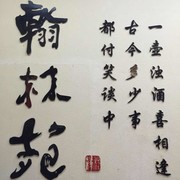 一壶浊酒喜相逢
古今多少事
都付笑谈中
翰林苑